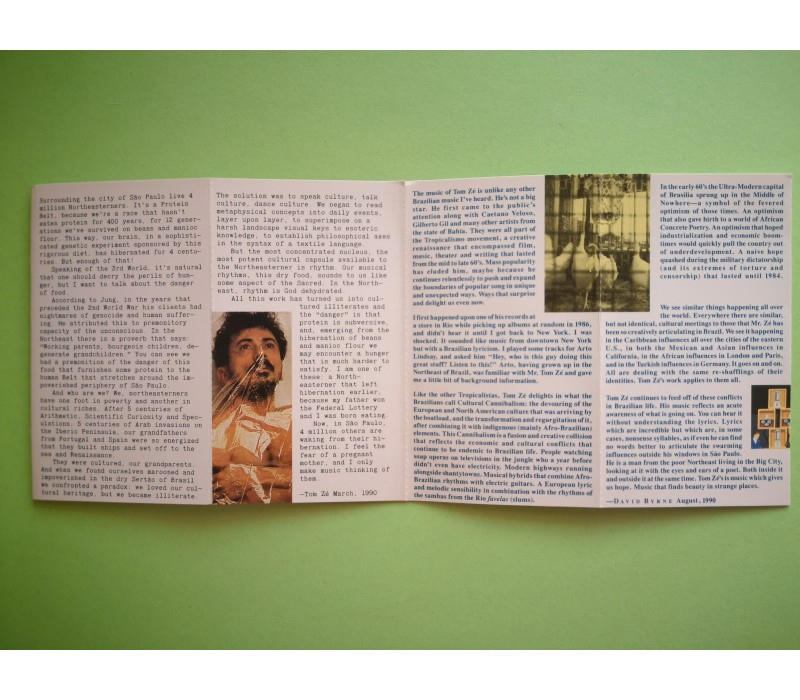 Surrounding the city of São Paulo live 4
million Northeasterners. It's a Protein
Belt, because we're a race that hasn't
eaten protein for 400 years, for 12 gener-
ations we've survived on beans and manioc
flour. This way, our brain, in a sophisti-
cated genetic experiment sponsored by this
rigorous diet, has hibernated for 4 centu-
ries. But enough of that!
Speaking of the 3rd World, it's natural
that one should decry the perils of hun-
ger, but I want to talk about the danger
of food.
According to Jung, in the years that
preceded the 2nd World War his clients had
nightmares of genocide and human suffer-
ing. He attributed this to premonitory
capacity of the unconscious. In the
Northeast there is a proverb that says:
"Working parents, bourgeois children, de-
generate grandchildren." You can see we
had a premonition of the danger of this
food that furnishes some protein to the
human Belt that stretches around the im-
poverished periphery of São Paulo.
And who are we? We, northeasterners
have one foot in poverty and another in
cultural riches. After 5 centuries of
Arithmetic, Scientific Curiosity and Spec-
ulations, 5 centuries of Arab invasions on
the Iberic Peninsula, our grandfathers
from Portugal and Spain were so energized
that they built ships and set off to the
sea and Renaissance.
They were cultured, our grandparents.
And when we found ourselves marooned and
impoverished in the dry Sertão of Brasil
we confronted a paradox: we loved our cul-
tural heritage, but we became illiterate.
The solution was to speak culture, talk
culture, dance culture. We began to read
metaphysical concepts into daily events,
layer upon layer, to superimpose on a
harsh landscape visual keys to esoteric
knowledge, to establish philosophical axes
in the syntax of a textile language.
But the most concentrated nucleus, the
most potent cultural capsule available to
the Northeasterner is rhythm. Our musical
rhythms, this dry food, sounds to us like
some aspect of the Sacred. In the North-
east, rhythm is God dehydrated.
All this work has turned us into cul-
tured illiterates and
the "danger" is that
protein is subversive,
and, emerging from the
hibernation of beans
and manioc flour we
may encounter a hunger
that is much harder to
satisfy. I am one of
these: a North-
easterner that left
hibernation earlier,
because my father won
the Federal Lottery
and I was born eating.
Now, in São Paulo,
4 million others are
waking from their hi-
bernation. I feel the
fear of a pregnant
mother, and I only
make music thinking of
them.
—Tom Zé March, 1990
The music of Tom Zé is unlike any other
Brazilian music I've heard. He's not a big
star. He first came to the public's
attention along with Caetano Veloso,
Gilberto Gil and many other artists from
the state of Bahia. They were all part of
the Tropicalismo movement, a creative
renaissance that encompassed film,
music, theater and writing that lasted
from the mid to late 60's. Mass popularity
has eluded him, maybe because he
continues relentlessly to push and expand
the boundaries of popular song in unique
and unexpected ways. Ways that surprise
and delight us even now.
I first happened upon one of his records at
a store in Rio while picking up albums at random in 1986,
and didn't hear it until I got back to New York. I was
shocked. It sounded like music from downtown New York
but with a Brazilian lyricism. I played some tracks for Arto
Lindsay, and asked him "Hey, who is this guy doing this
great stuff? Listen to this!" Arto, having grown up in the
Northeast of Brazil, was familiar with Mr. Tom Zé and gave
me a little bit of background information.
Like the other Tropicalistas, Tom Zé delights in what the
Brazilians call Cultural Cannibalism: the devouring of the
European and North American culture that was arriving by
the boatload, and the transformation and regurgitation of it,
after combining it with indigenous (mainly Afro-Brazilian)
elements. This Cannibalism is a fusion and creative collision
that reflects the economic and cultural conflicts that
continue to be endemic to Brazilian life. People watching
soap operas on televisions in the jungle who a year before
didn't even have electricity. Modern highways running
alongside shantytowns. Musical hybrids that combine Afro-
Brazilian rhythms with electric guitars. A European lyric
and melodic sensibility in combination with the rhythms of
the sambas from the Rio favelas (slums).
In the early 60's the Ultra-Modern capital
of Brasilia sprung up in the Middle of
Nowhere—a symbol of the fevered
optimism of those times. An optimism
that also gave birth to a world of African
Concrete Poetry. An optimism that hoped
industrialization and economic boom-
times would quickly pull the country out
of underdevelopment. A naive hope
quashed during the military dictatorship
(and its extremes of torture and
censorship) that lasted until 1984.
We see similar things happening all over
the world. Everywhere there are similar,
but not identical, cultural meetings to those that Mr. Zé has
been so creatively articulating in Brazil. We see it happening
in the Caribbean influences all over the cities of the eastern
U.S., in both the Mexican and Asian influences in
California, in the African influences in London and Paris,
and in the Turkish influences in Germany. It goes on and on.
All are dealing with the same re-shufflings of their
identities. Tom Zé's work applies to them all.
Tom Zé continues to feed off of these conflicts
in Brazilian life. His music reflects an acute
awareness of what is going on. You can hear it
without understanding the lyrics. Lyrics
which are incredible but which are, in some
cases, nonsense syllables, as if even he can find
no words better to articulate the swarming
influences outside his windows in São Paulo.
He is a man from the poor Northeast living in the Big City,
looking at it with the eyes and ears of a poet. Both inside it
and outside it at the same time. Tom Zé's is music which gives
us hope. Music that finds beauty in strange places.
—DAVID BYRNE August, 1990